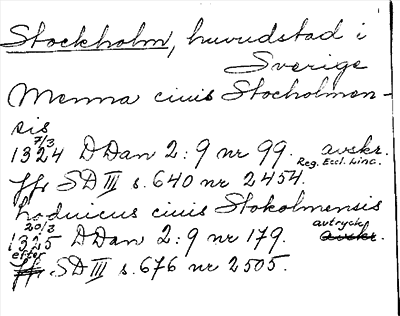 Stockholm, huvudstad i
Sverige
Menna ciuis Stocholmen-
sis
7/3
1324 DDan 2:9 nr 99. avskr.
Reg. Eccl. Linc.
jfr SD III s. 640 nr 2454.
hoduicus ciuis Stokolmensis
20/3 avtryck
1325 DDan 2:9 nr 179. avskr.
efter
jfr SD III s. 676 nr 2505.